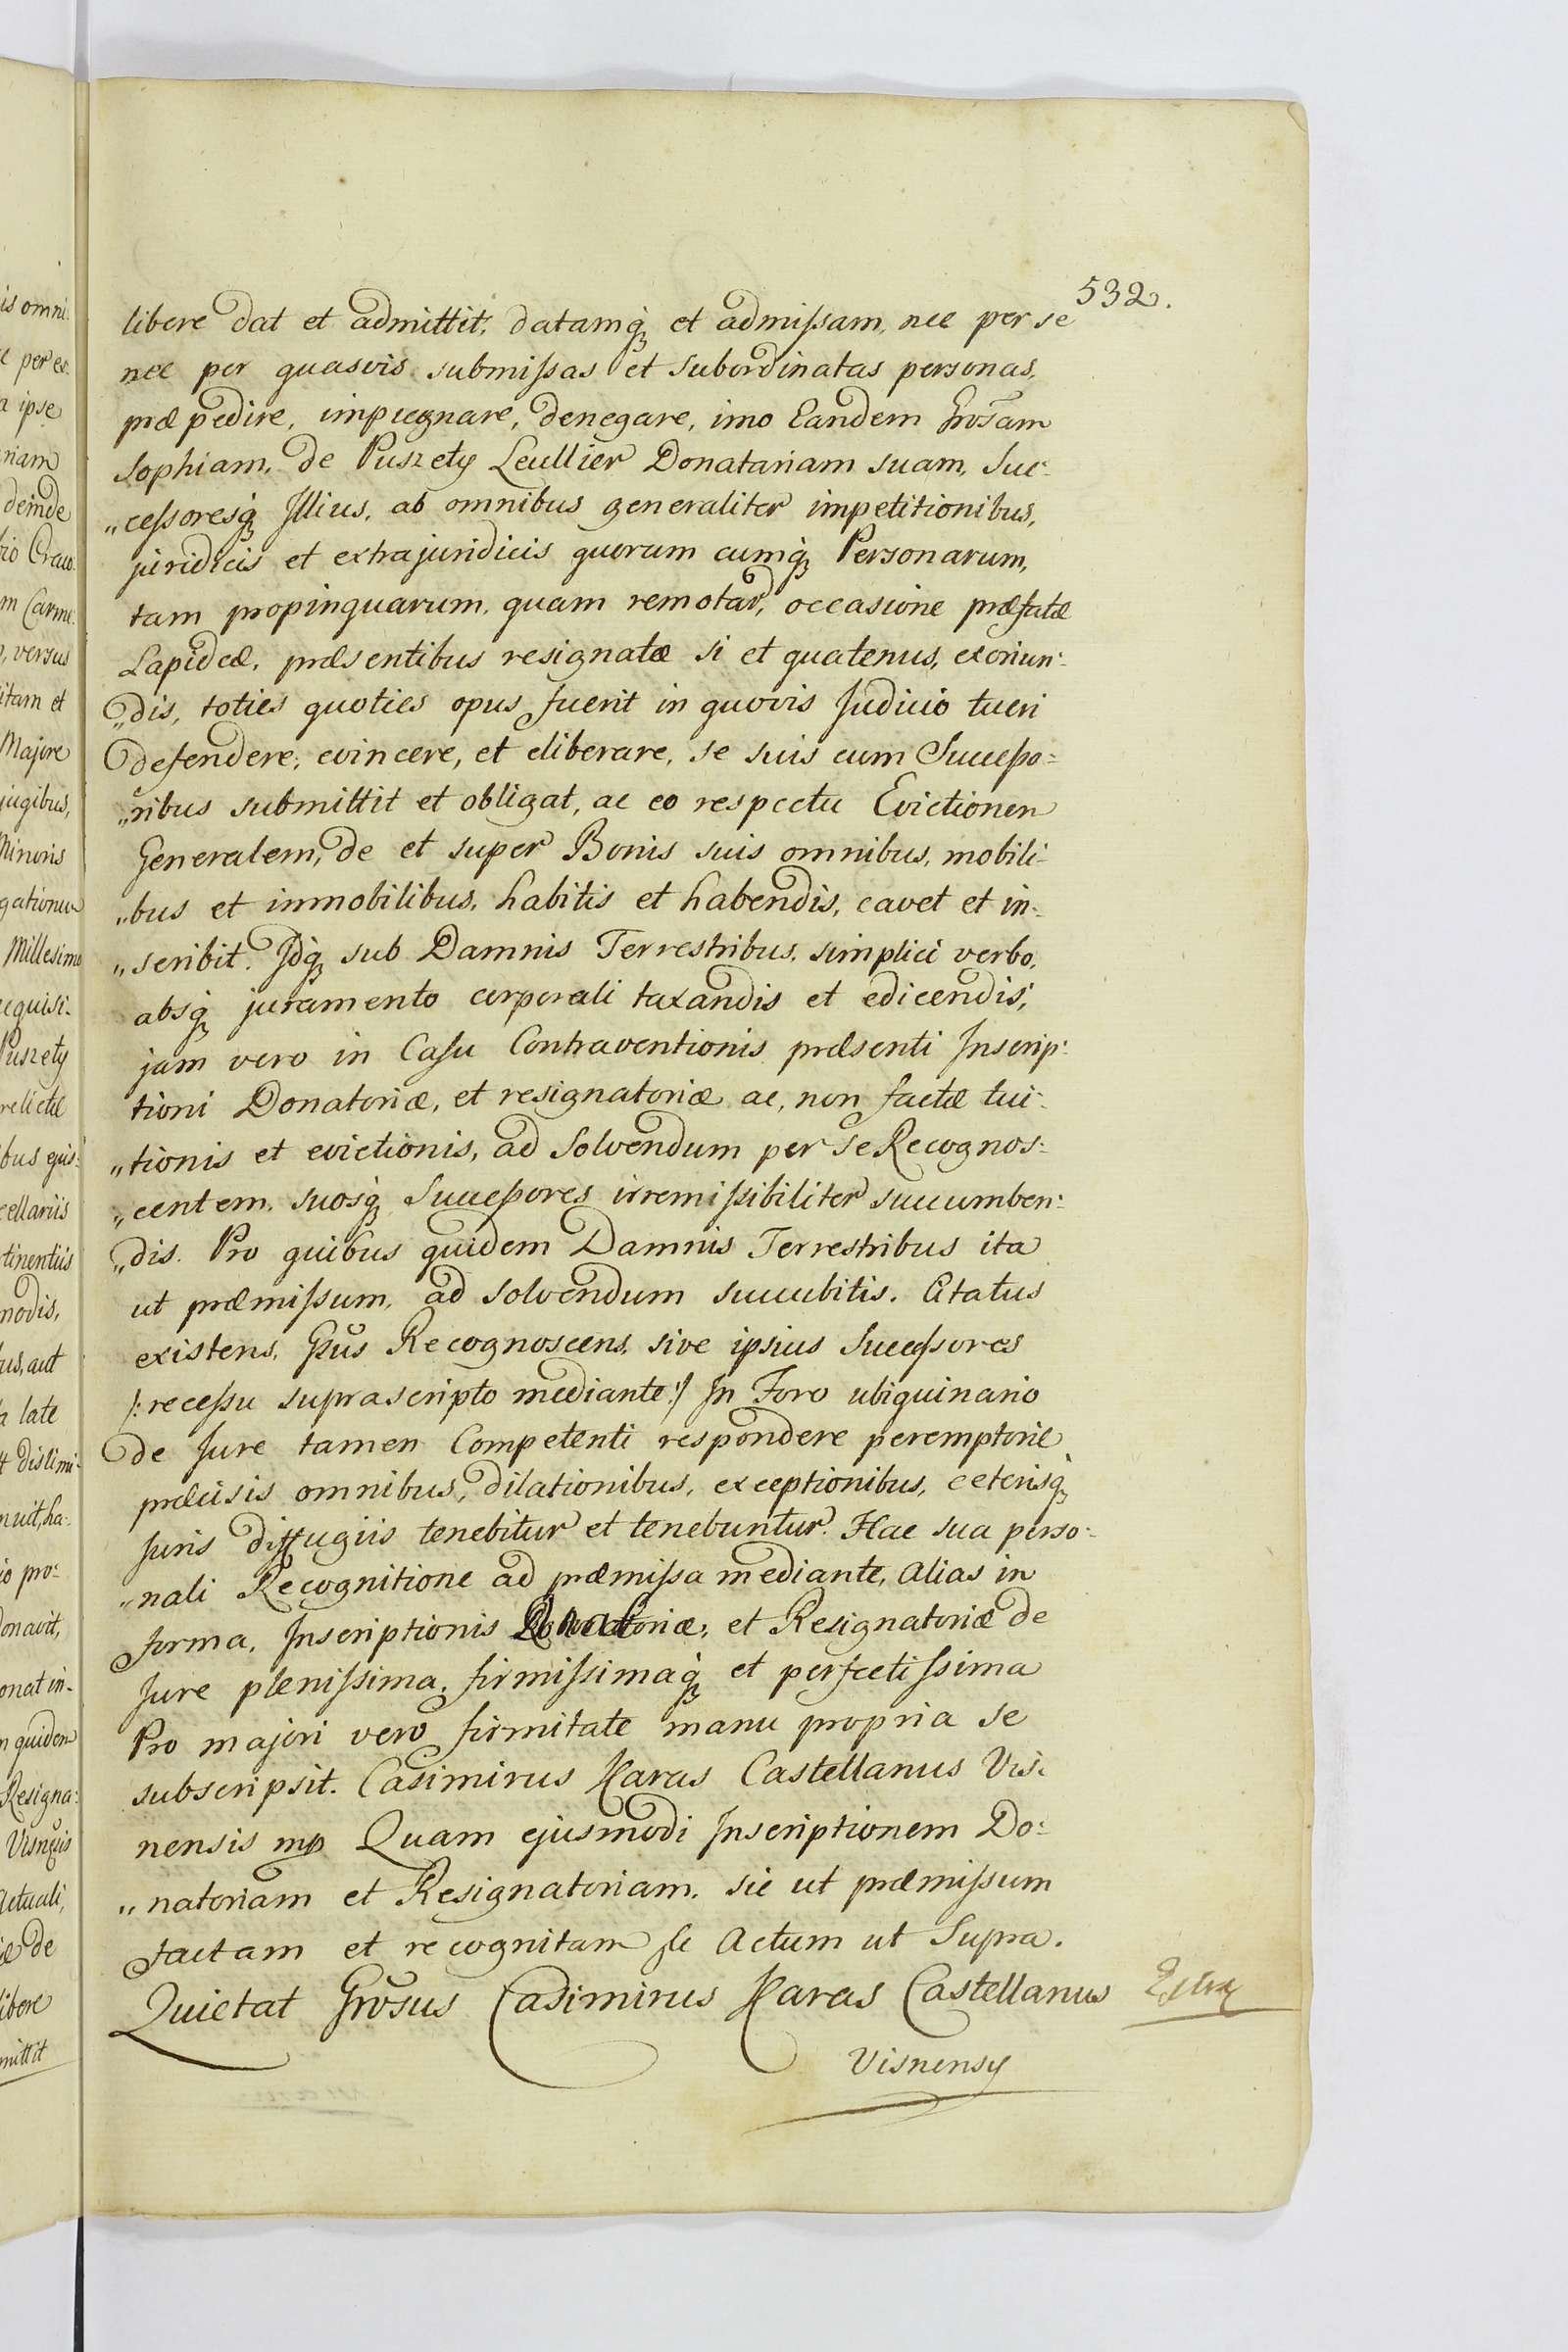 532.
libere dat et admittit, datamq́ꝫ et admiſsam, nec per se
nec per quasvis submiſsas et subordinatas personas,
præpedire, impugnare, denegare, imo Eandem Gnosam
Sophiam, de Puszety Leullier Donatariam suam, Suc-
„ceſsoresq́ꝫ Illius, ab omnibus generaliter impetitionibus,
juridicis et extrajuridicis quorum cumq́ꝫ Personarum,
tam propinquarum, quam remotar, occasione præfatæ
Lapideæ, præsentibus resignatæ si et quatenus, exoriun-
„dis, toties quoties opus fuerit in quovis Judicio tueri
defendere, evincere, et eliberare, se suis cum Succeſso-
„ribus submittit et obligat, ac eo respectu Evictionem
Generalem, de et super Bonis suis omnibus, mobili-
„bus et immobilibus, habitis et habendis, cavet et in-
„scribit. Idq́ꝫ sub Damnis Terrestribus, simplici verbo,
absq́ꝫ juramento corporali taxandis et edicendis,
jam vero in Casu Contraventionis præsenti Inscrip-
tioni Donatoriæ, et resignatoriæ ac, non factæ tui-
„tionis et evictionis, ad solvendum per se Recognos-
„centem, suosq́ꝫ Succeſsores irremiſsibiliter succumben-
„dis. Pro quibus quidem Damnis Terrestribus ita
ut præmiſsum, ad solvendum succubitis. Citatus
existens, Gsus Recognoscens, sive ipsius Succeſsores
/: receſsu suprascripto mediante :/ In Foro ubiquinario
de Jure tamen Competenti respondere peremptorie
præcisis omnibus, dilationibus, exceptionibus, ceterisq́ꝫ
Juris diffugiis tenebitur et tenebuntur. Hac sua perso-
„nali Recognitione ad præmiſsa mediante, alias in
forma, Inscriptionis Donatoriæ, et Resignatoriæ de
Jure pleniſsima, firmiſsimaq́ꝫ et perfectiſsima
Pro majori vero firmitate manu propria se
subscripsit. Casimirus Karas Castellanus Vis-
nensis mp Quam ejusmodi Inscriptionem Do-
„natoriam et Resignatoriam, sic ut præmiſsum
factam et recognitam Actum ut Supra.
Quietat Grosus Casimirus Karas Castellanus
Visnensy